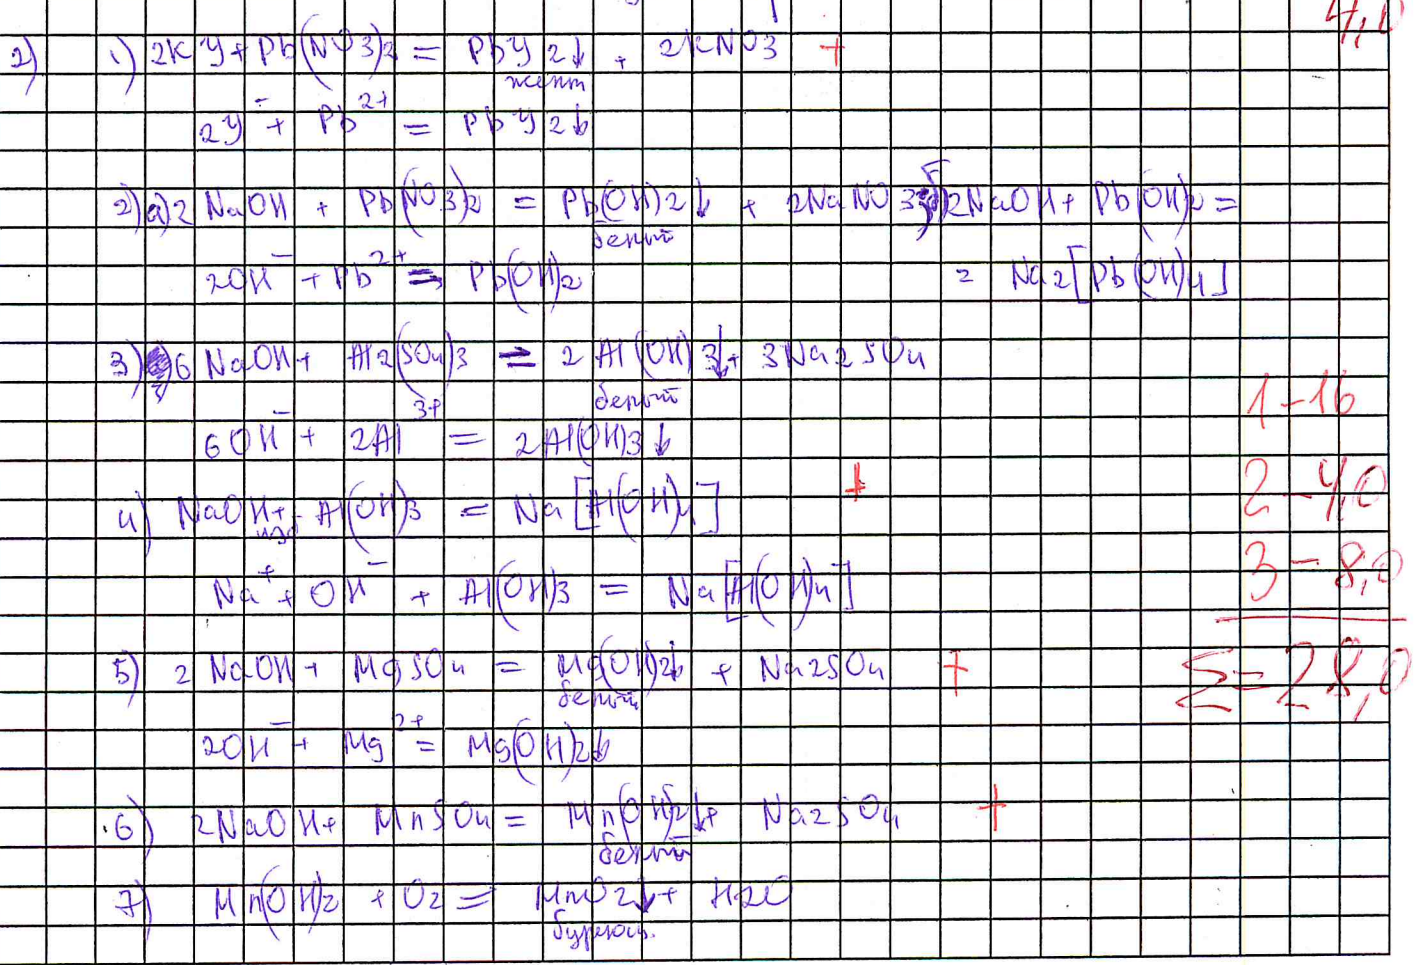 4,0
2) 1) 2KY + Pb(NO3)2 = PbY2↓ + 2KNO3 +
желт
2Y⁻ + Pb²⁺ = PbY2↓
2) а) 2NaOH + Pb(NO3)2 = Pb(OH)2↓ + 2NaNO3 б) 2NaOH + Pb(OH)2 =
белый
2OH⁻ + Pb²⁺ = Pb(OH)2 = Na2[Pb(OH)4]
3) 6NaOH + Al2(SO4)3 = 2Al(OH)3↓ + 3Na2SO4
белый
1 - 16
6OH⁻ + 2Al³⁺ = 2Al(OH)3↓
4) NaOH + Al(OH)3 = Na[Al(OH)4] +
изб
2 - 4,0
Na⁺ + OH⁻ + Al(OH)3 = Na[Al(OH)4]
3 - 8,0
5) 2NaOH + MgSO4 = Mg(OH)2↓ + Na2SO4 +
белый
Σ = 28,0
2OH⁻ + Mg²⁺ = Mg(OH)2↓
6) 2NaOH + MnSO4 = Mn(OH)2↓ + Na2SO4 +
белый
7) Mn(OH)2 + O2 = MnO2↓ + H2O